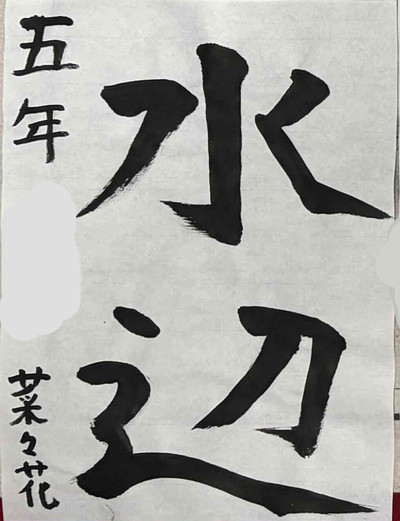 水辺
五年
菜々花